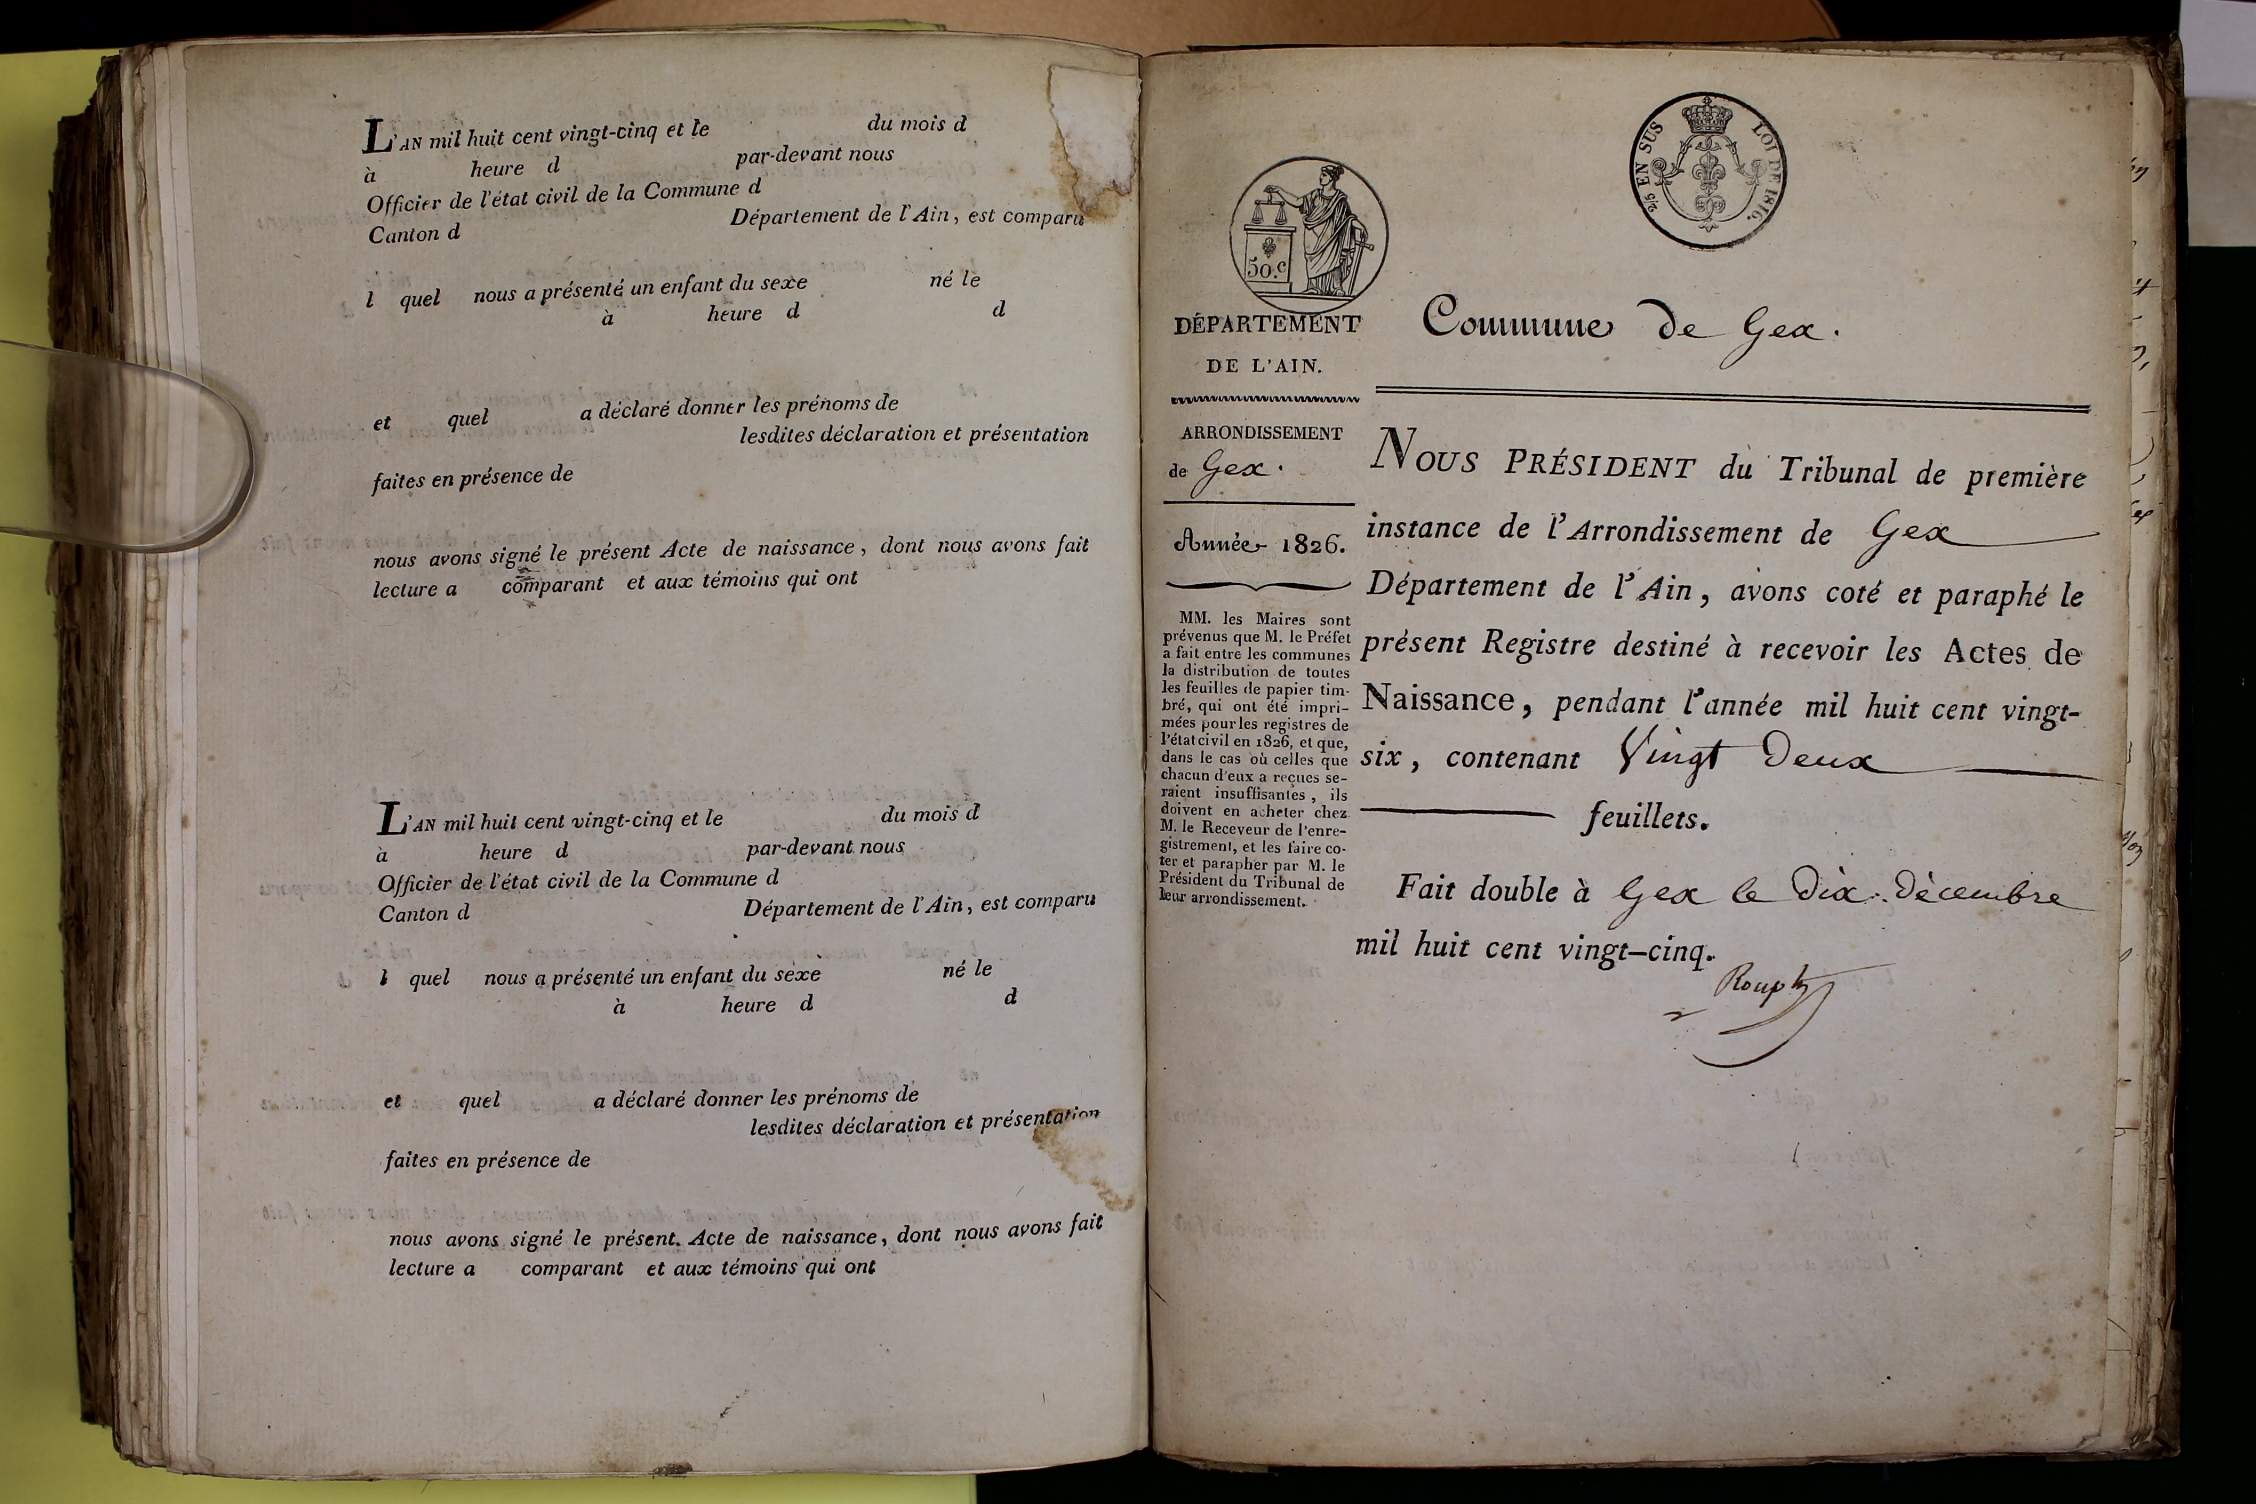 L'AN mil huit cent vingt-cinq et le du mois d
à heure d par-devant nous
Officier de l'état civil de la Commune d
Canton d Département de l'Ain, est comparu
l quel nous a présenté un enfant du sexe né le
à heure d d
et quel a déclaré donner les prénoms de
lesdites déclaration et présentation
faites en présence de
nous avons signé le présent Acte de naissance, dont nous avons fait
lecture a comparant et aux témoins qui ont
L'AN mil huit cent vingt-cinq et le du mois d
à heure d par-devant nous
Officier de l'état civil de la Commune d
Canton d Département de l'Ain, est comparu
l quel nous a présenté un enfant du sexe né le
à heure d d
et quel a déclaré donner les prénoms de
lesdites déclaration et présentation
faites en présence de
nous avons signé le présent Acte de naissance, dont nous avons fait
lecture a comparant et aux témoins qui ont
2/5 EN SUS LOI DE 1816.
50.c
DÉPARTEMENT
DE L'AIN.
Commune de Gex.
ARRONDISSEMENT
de Gex.
Année 1826.
MM. les Maires sont
prévenus que M. le Préfet
a fait entre les communes
la distribution de toutes
les feuilles de papier tim-
bré, qui ont été impri-
mées pour les registres de
l'état civil en 1826, et que,
dans le cas où celles que
chacun d'eux a reçues se-
raient insuffisantes, ils
doivent en acheter chez
M. le Receveur de l'enre-
gistrement, et les faire co-
ter et parapher par M. le
Président du Tribunal de
leur arrondissement.
NOUS PRÉSIDENT du Tribunal de première
instance de l'Arrondissement de Gex
Département de l'Ain, avons coté et paraphé le
présent Registre destiné à recevoir les Actes de
Naissance, pendant l'année mil huit cent vingt-
six, contenant Vingt Deux
feuillets.
Fait double à Gex le Dix Décembre
mil huit cent vingt-cinq.